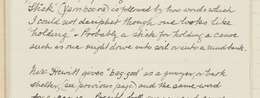 Stick" (Yambooro) is followed by two words which
I could not decipher though one looks like
"holding". Probably a stick for holding a canoe
such as one might drive into soil or into a mud bank.
Miss Hewitt gives "bag-god" as a gunyer, or bark
shelter, (see previous page) and the same word